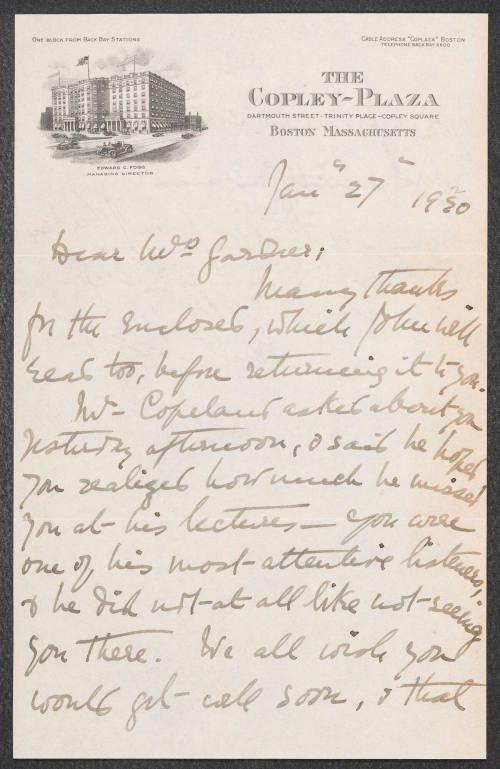 ONE BLOCK FROM BACK BAY STATIONS
CABLE ADDRESS "COPLAZA" BOSTON
TELEPHONE BACK BAY 5600
THE
COPLEY-PLAZA
DARTMOUTH STREET - TRINITY PLACE - COPLEY SQUARE
BOSTON MASSACHUSETTS
EDWARD C. FOGG
MANAGING DIRECTOR
Jan" 27" 1920
Dear Mrs Gardner;
Many thanks
for the enclosed, which John will
read too, before returning it to you.
Mr- Copeland asked about you
yesterday afternoon, & said he hoped
you realized how much he missed
you at his lectures - you were
one of his most-attentive listeners,
& he did not-at all like not-seeing
you there. We all wish you
would get- well soon, & that